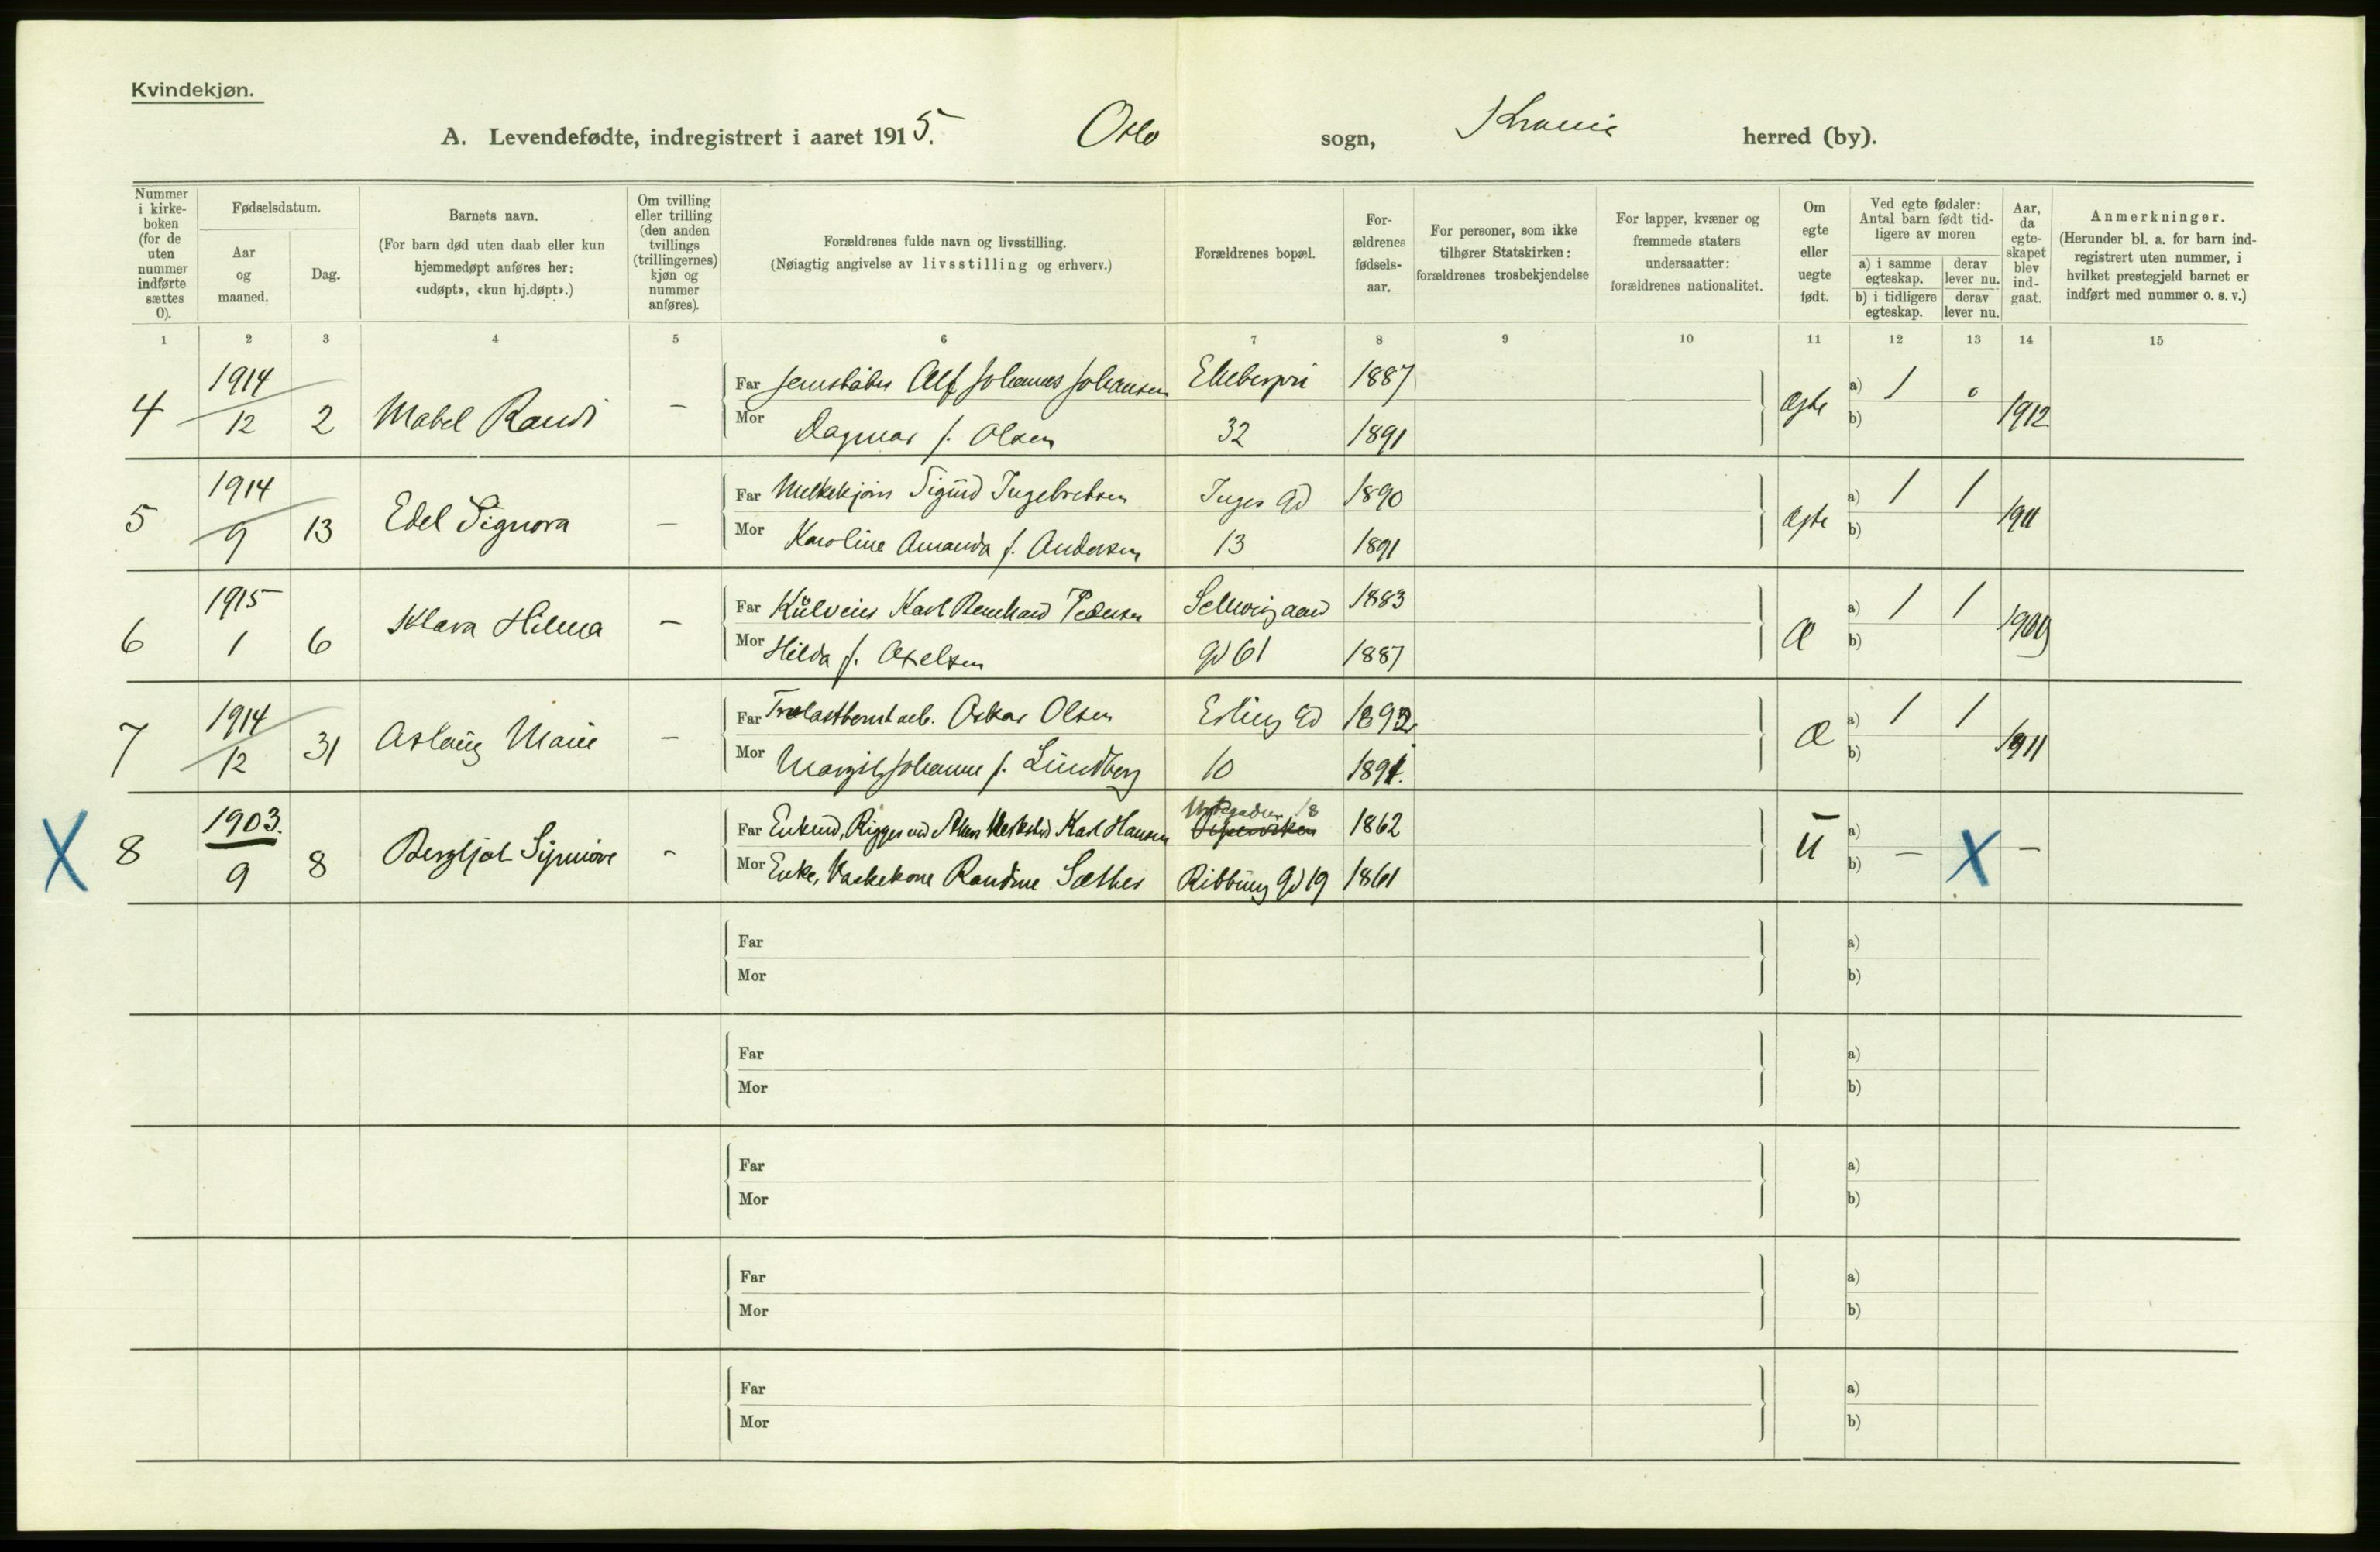 Kvindekjøn.
A. Levendefødte, indregistrert i aaret 1915. Oslo sogn, Krania herred (by).
Nummer i kirke-boken (for de uten nummer indførte sættes 0).
Fødselsdatum.
Aar og maaned.
Dag.
Barnets navn.
(For barn død uten daab eller kun hjemmedøpt anføres her: «udøpt», «kun hj.døpt».)
Om tvilling eller trilling (den anden tvillings (trillingernes) kjøn og nummer anføres).
Forældrenes fulde navn og livsstilling.
(Nøiagtig angivelse av livsstilling og erhverv.)
Forældrenes bopæl.
For-ældrenes fødsels-aar.
For personer, som ikke tilhører Statskirken: forældrenes trosbekjendelse
For lapper, kvæner og fremmede staters undersaatter: forældrenes nationalitet.
Om egte eller uegte født.
Ved egte fødsler: Antal barn født tid-ligere av moren
a) i samme egteskap.
derav lever nu.
b) i tidligere egteskap.
derav lever nu.
Aar, da egte-skapet blev ind-gaat.
Anmerkninger.
(Herunder bl. a. for barn ind-registrert uten nummer, i hvilket prestegjeld barnet er indført med nummer o. s. v.)
1 2 3 4 5 6 7 8 9 10 11 12 13 14 15
4 1914 12 2 Mabel Randi –
Far Alf Johannes Johansen 1887
Mor Dagmar f. Olsen 32 1891
Ægte a) 1 0 b) 1912
5 1914 9 13 Edel Signora –
Far Melkekjører Sigurd Ingebretsen Inges Gd 1890
Mor Karoline Amanda f. Andersen 13 1891
Ægte a) 1 1 b) 1911
6 1915 1 6 Klara Hilma –
Far Karl Pedersen Schweigaard 1883
Mor Hilda f. Axelsen Gd 61 1887
Æ a) 1 1 b) 1909
7 1914 12 31 Aslaug Marie –
Far Oskar Olsen Erling Gd 1892
Mor Margit Johanne f. Lundberg 10 1891.
Æ a) 1 1 b) 1911
X 8 1903. 9 8 Bergljot –
Far Enkemd, Rigger ved Akers Verksted Karl Hansen 18 1862
Mor Enke, Vaskekone Randine Sæther Ribbung Gd 19 1861
U a) b) – X –
Far
Mor
a)
b)
Far
Mor
a)
b)
Far
Mor
a)
b)
Far
Mor
a)
b)
Far
Mor
a)
b)